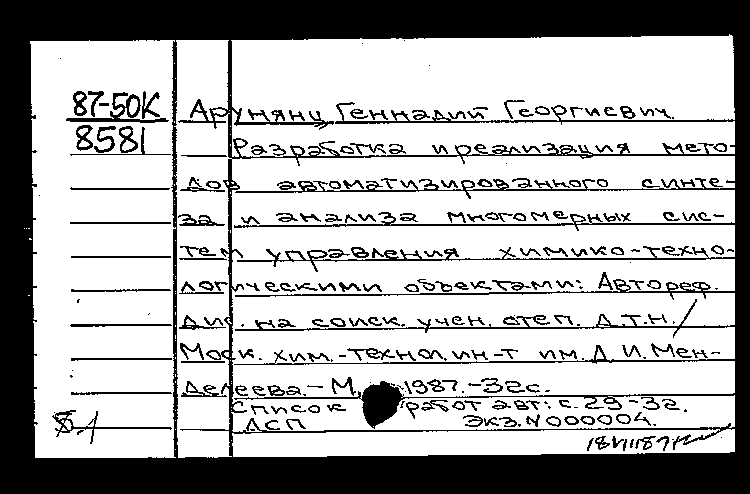 87-50К Арумянц Геннадий Георгиевич
8581 Разработка и реализация мето-
дов автоматизированного синте-
за и анализа многомерных сис-
тем управления химико-техно-
логическими объектами: Автореф.
дис. на соиск. учен. степ. д.т.н. /
Моск. хим.-технол. ин-т им. Д.И. Мен-
делеева. - М., 1987. - 32с.
Список работ авт: с. 29-32.
ДСП Экз. N 000004.